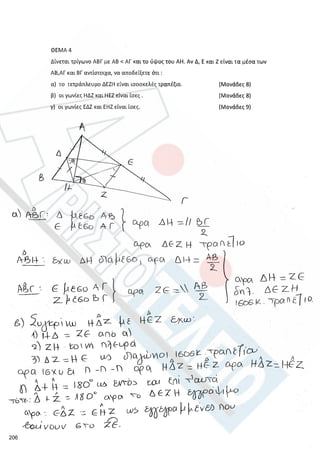 ΘΕΜΑ 4
Δίνεται τρίγωνο ΑΒΓ με ΑΒ < ΑΓ και το ύψος του ΑΗ. Αν Δ, Ε και Ζ είναι τα μέσα των
ΑΒ,ΑΓ και ΒΓ αντίστοιχα, να αποδείξετε ότι :
α) το τετράπλευρο ΔΕΖΗ είναι ισοσκελές τραπέζιο. (Μονάδες 8)
β) οι γωνίες ΗΔΖ και ΗΕΖ είναι ίσες . (Μονάδες 8)
γ) οι γωνίες ΕΔΖ και ΕΗΖ είναι ίσες. (Μονάδες 9)
Α
Δ
Ε
Β
Η
Ζ
Γ
α) ΑΒΓ : Δ μέσο ΑΒ
Ε μέσο ΑΓ } αρα ΔΗ =// ΒΓ/2
αρα ΔΕΖΗ τραπέζιο
ΑΒΗ : έχω ΔΗ διάμεσο, αρα ΔΗ = ΑΒ/2
ΑΒΓ : Ε μέσο ΑΓ
Ζ μέσο ΒΓ } αρα ΖΕ =\\ ΑΒ/2
αρα ΔΗ = ΖΕ
δηλ. ΔΕΖΗ
ισοσκ. τραπέζιο.
β) Συγκρίνω ΗΔΖ με ΗΕΖ έχω:
1) ΗΔ = ΖΕ από α)
2) ΖΗ κοινή πλευρά
3) ΔΖ = ΗΕ ως διαγώνιοι ισοσκ τραπεζίου
αρα ισχύει Π-Π-Π αρα ΗΔΖ = ΗΕΖ αρα ΗΔΖ = ΗΕΖ
γ) Δ + Η = 180° ως εντός και επί τ'αυτά
τότε: Δ + Ζ = 180° αρα το ΔΕΖΗ εγγράψιμο
αρα : ΕΔΖ = ΕΗΖ ως εγγεγραμμένες που
βαίνουν στο ΖΕ.
206